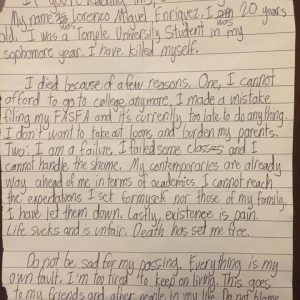 My name is Lorenzo Miguel Enriquez. I was 20 years
old. I was a Temple University student in my
sophomore year. I have killed myself.
I died because of a few reasons. One, I cannot
afford to go to college anymore. I made a mistake
filing my FAFSA and it's currently too late to do anything.
I don't want to take out loans and burden my parents.
Two, I am a failure. I failed some classes and I
cannot handle the shame. My contemporaries are already
way ahead of me in terms of academics. I cannot reach
the expectations I set for myself nor those of my family.
I have let them down. Lastly, existence is pain.
Life sucks and is unfair. Death has set me free.
Do not be sad for my passing. Everything is my
own fault. I'm too tired to keep on living. This goes
to my friends and other people in my life. Do not blame